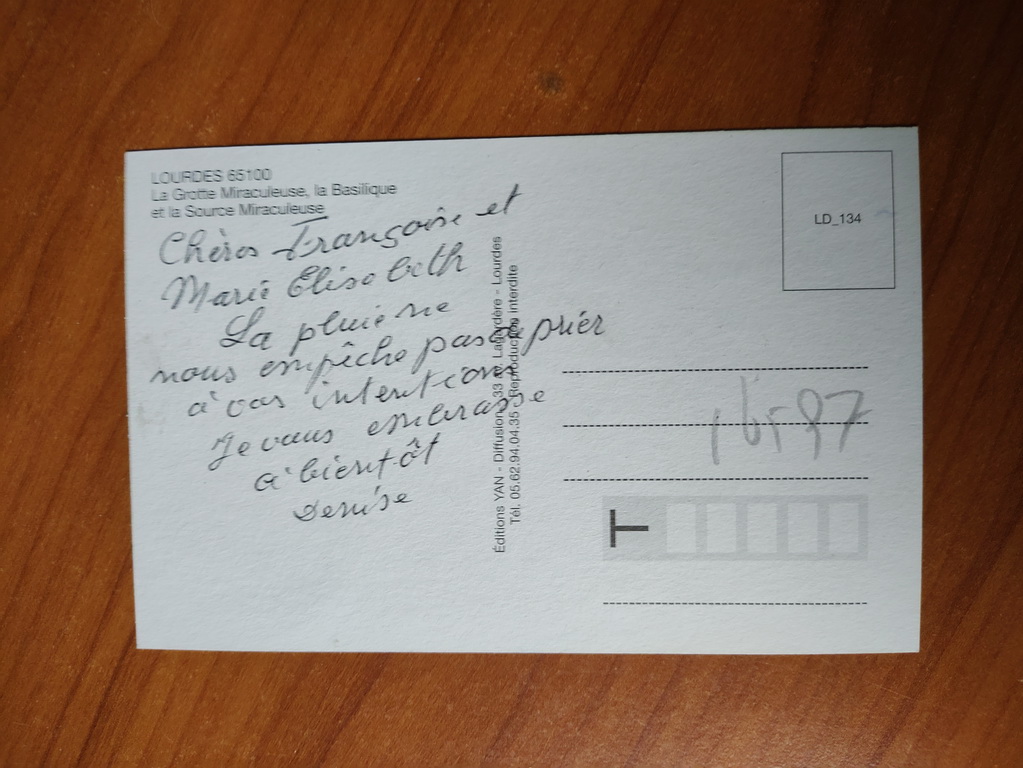 LOURDES 65100
La Grotte Miraculeuse, la Basilique
et la Source Miraculeuse
Chères Françoise et
Marie Elisabeth
La pluie ne
nous empêche pas de prier
à vos intentions
Je vous embrasse
à bientôt
Denise
Éditions YAN - Diffusion - 33 Lagardère - Lourdes
Tél. 05.62.94.04.35 - Reproduction interdite
LD_134
T